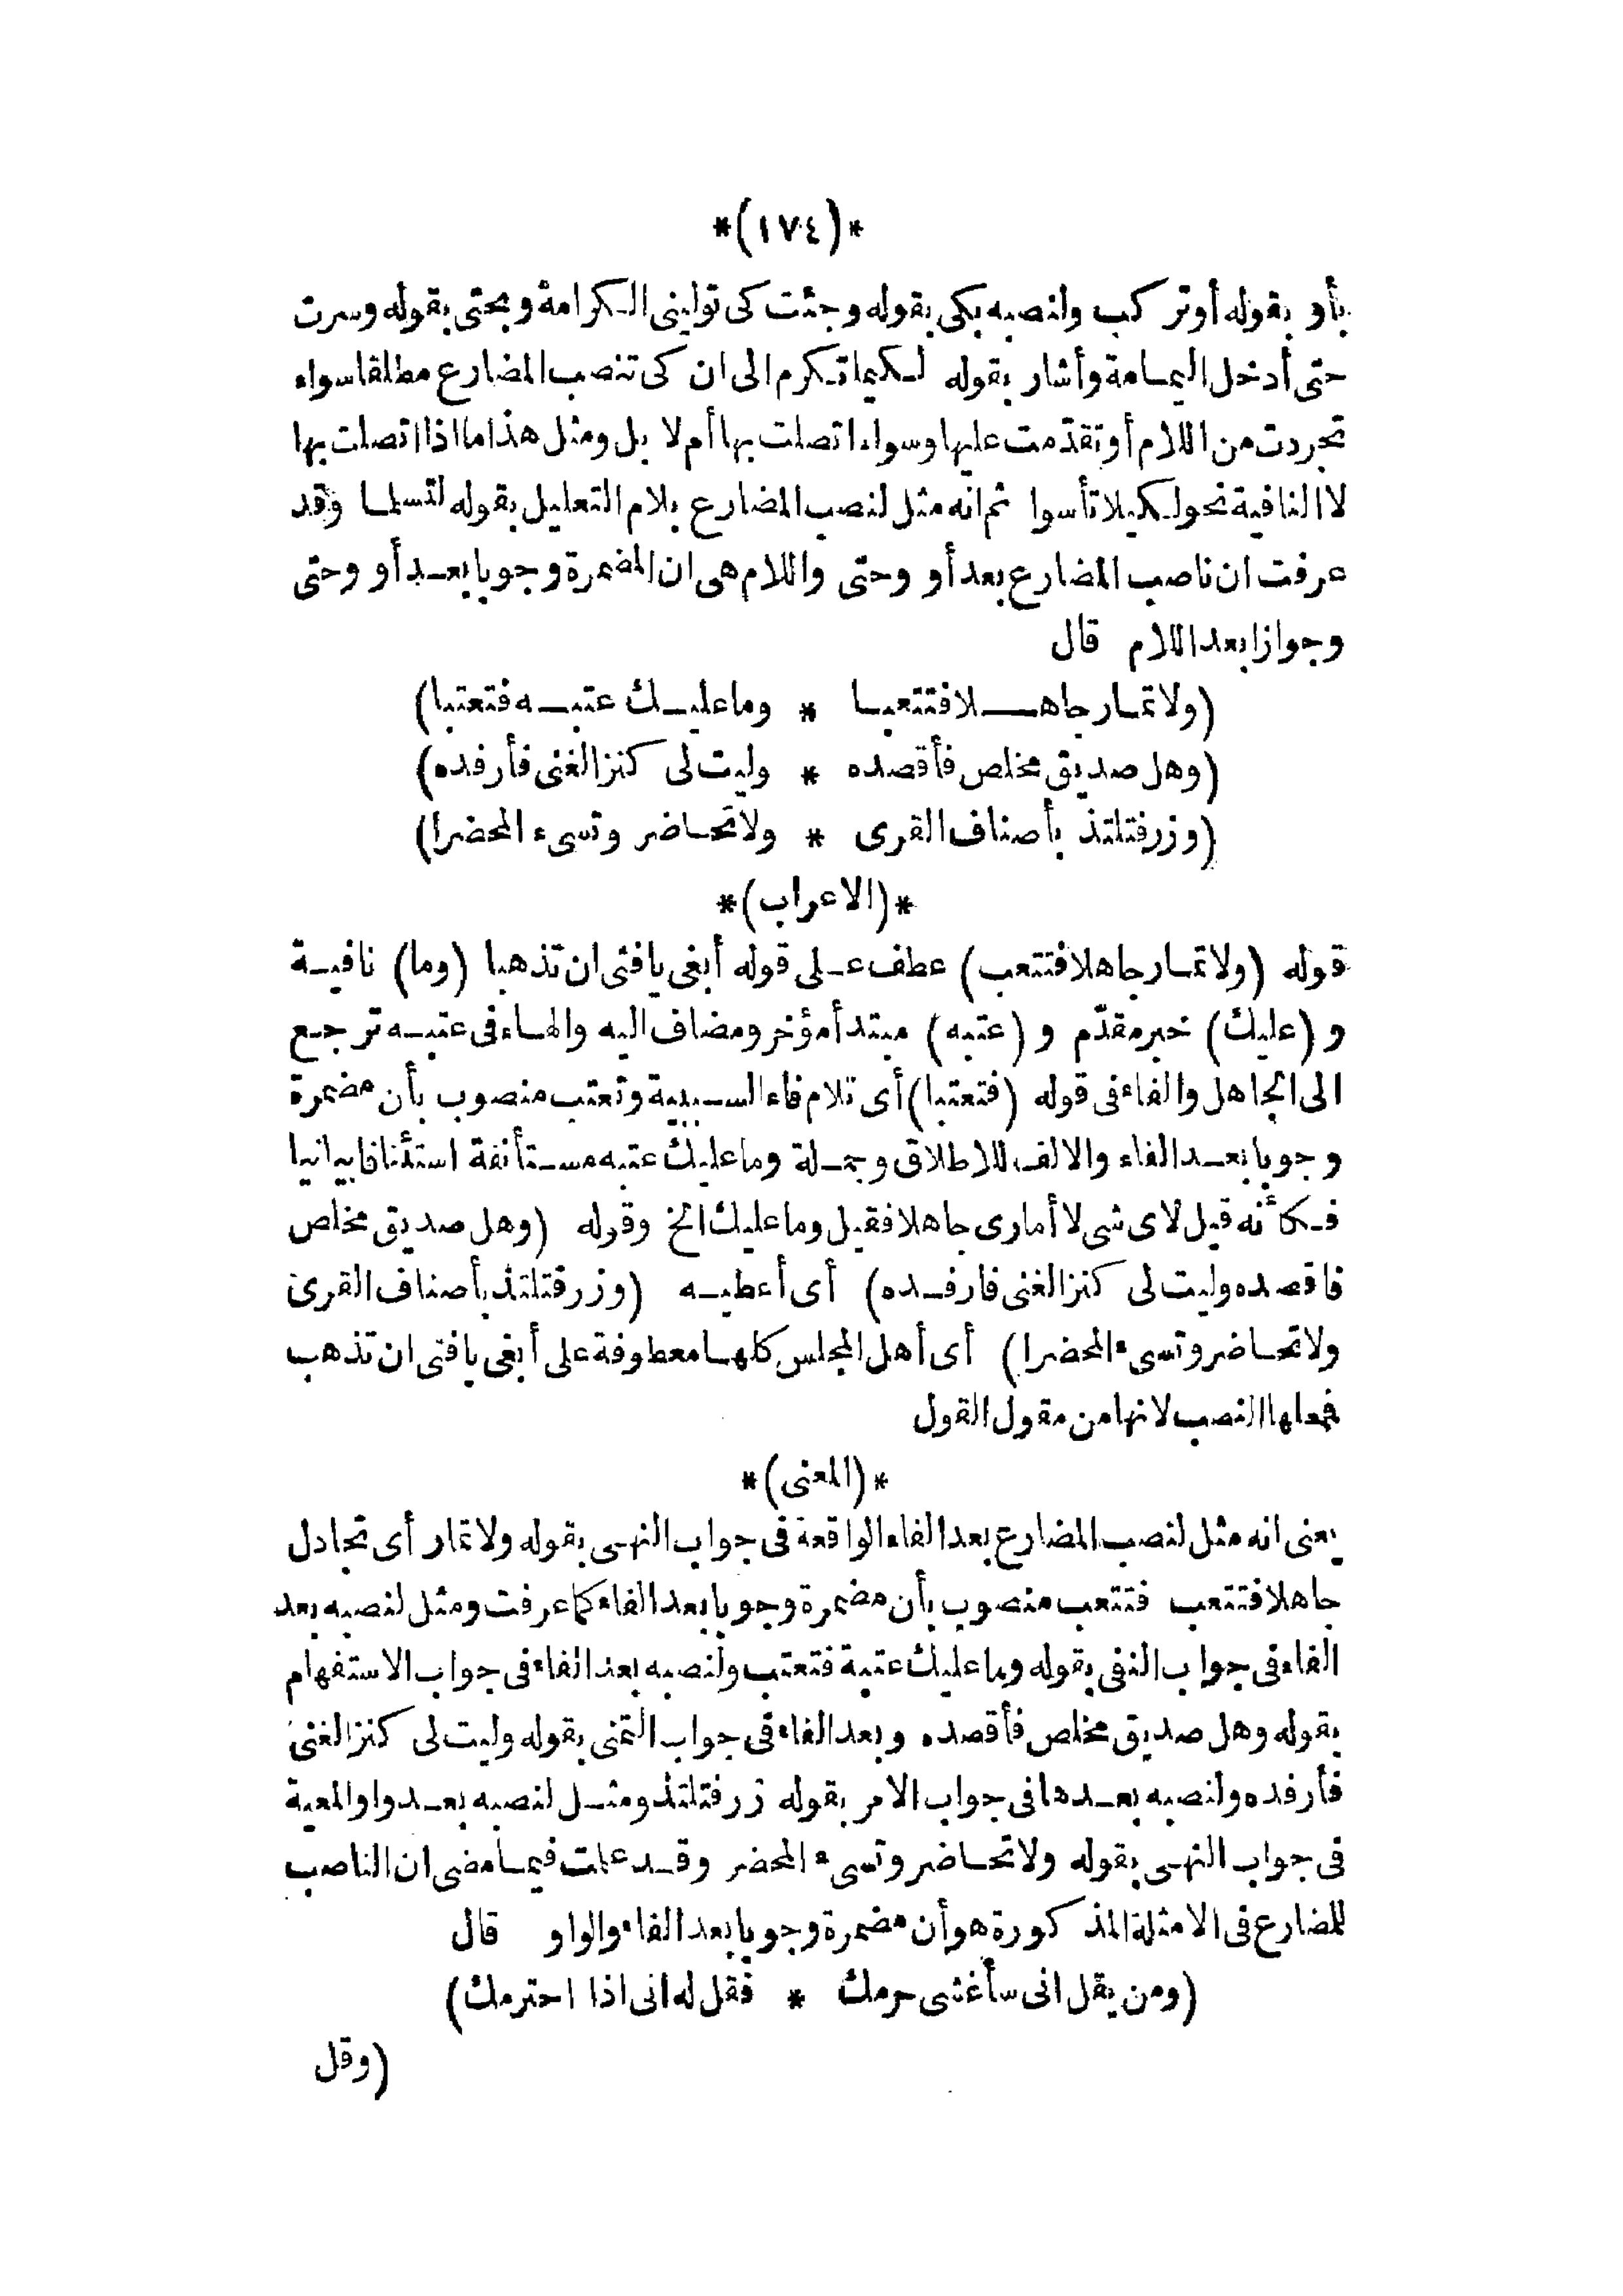 *(١٧٤)*
بأو بقوله أوتركب ولنصبه بكى بقوله وجئت كى توليني الكرامة وبحتى بقوله وسرت
حتى أدخل اليمامة وأشار بقوله لكيما تكرم الى ان كى تنصب المضارع مطلقا سواء
تجردت من اللام أو تقدّمت عليها وسواء اتصلت بها أم لا بل ومثل هذا ما اذا اتصلت بها
لا النافية نحو لكيلا تأسوا ثم انه مثل لنصب المضارع بلام التعليل بقوله لتسلما وقد
عرفت ان ناصب المضارع بعد أو وحتى واللام هى ان المضمرة وجوبا بعد أو وحتى
وجوازا بعد اللام قال
(ولا تمار جاهلا فتتعبا * وما عليك عتبه فتعتبا)
(وهل صديق مخلص فأقصده * وليت لى كنز الغنى فأرفده)
(وزر فتلتذ بأصناف القرى * ولا تحاضر وتسىء المحضرا)
*(الاعراب)*
قوله (ولا تمار جاهلا فتتعب) عطف على قوله أبغى يا فتى ان تذهبا (وما) نافية
و (عليك) خبر مقدّم و (عتبه) مبتدأ مؤخر ومضاف اليه والهاء فى عتبه ترجع
الى الجاهل والفاء فى قوله (فتعتبا) أى تلام فاء السببية وتعتب منصوب بأن مضمرة
وجوبا بعد الفاء والالف للاطلاق وجملة وما عليك عتبه مستأنفة استئنافا بيانيا
فكأنه قيل لاى شى لا أمارى جاهلا فقيل وما عليك الخ وقوله (وهل صديق مخلص
فاقصده وليت لى كنز الغنى فارفده) أى أعطيه (وزر فتلتذ بأصناف القرى
ولا تحاضر وتسىء المحضرا) أى أهل المجلس كلها معطوفة على أبغى يا فتى ان تذهب
فمحلها النصب لانها من مقول القول
*(المعنى)*
يعنى انه مثل لنصب المضارع بعد الفاء الواقعة فى جواب النهى بقوله ولا تمار أى تجادل
جاهلا فتتعب فتتعب منصوب بأن مضمرة وجوبا بعد الفاء كما عرفت ومثل لنصبه بعد
الفاء فى جواب النفى بقوله وما عليك عتبة فتعتب ولنصبه بعد الفاء فى جواب الاستفهام
بقوله وهل صديق مخلص فأقصده وبعد الفاء فى جواب التمنى بقوله وليت لى كنز الغنى
فأرفده ولنصبه بعدها فى جواب الامر بقوله زر فتلتذ ومثل لنصبه بعد واو المعية
فى جواب النهى بقوله ولا تحاضر وتسىء المحضر وقد علمت فيما مضى ان الناصب
للمضارع فى الامثلة المذكورة هو أن مضمرة وجوبا بعد الفاء والواو قال
(ومن يقل انى سأغشى حرمك * فقل له انى اذا احترمك)
(وقل